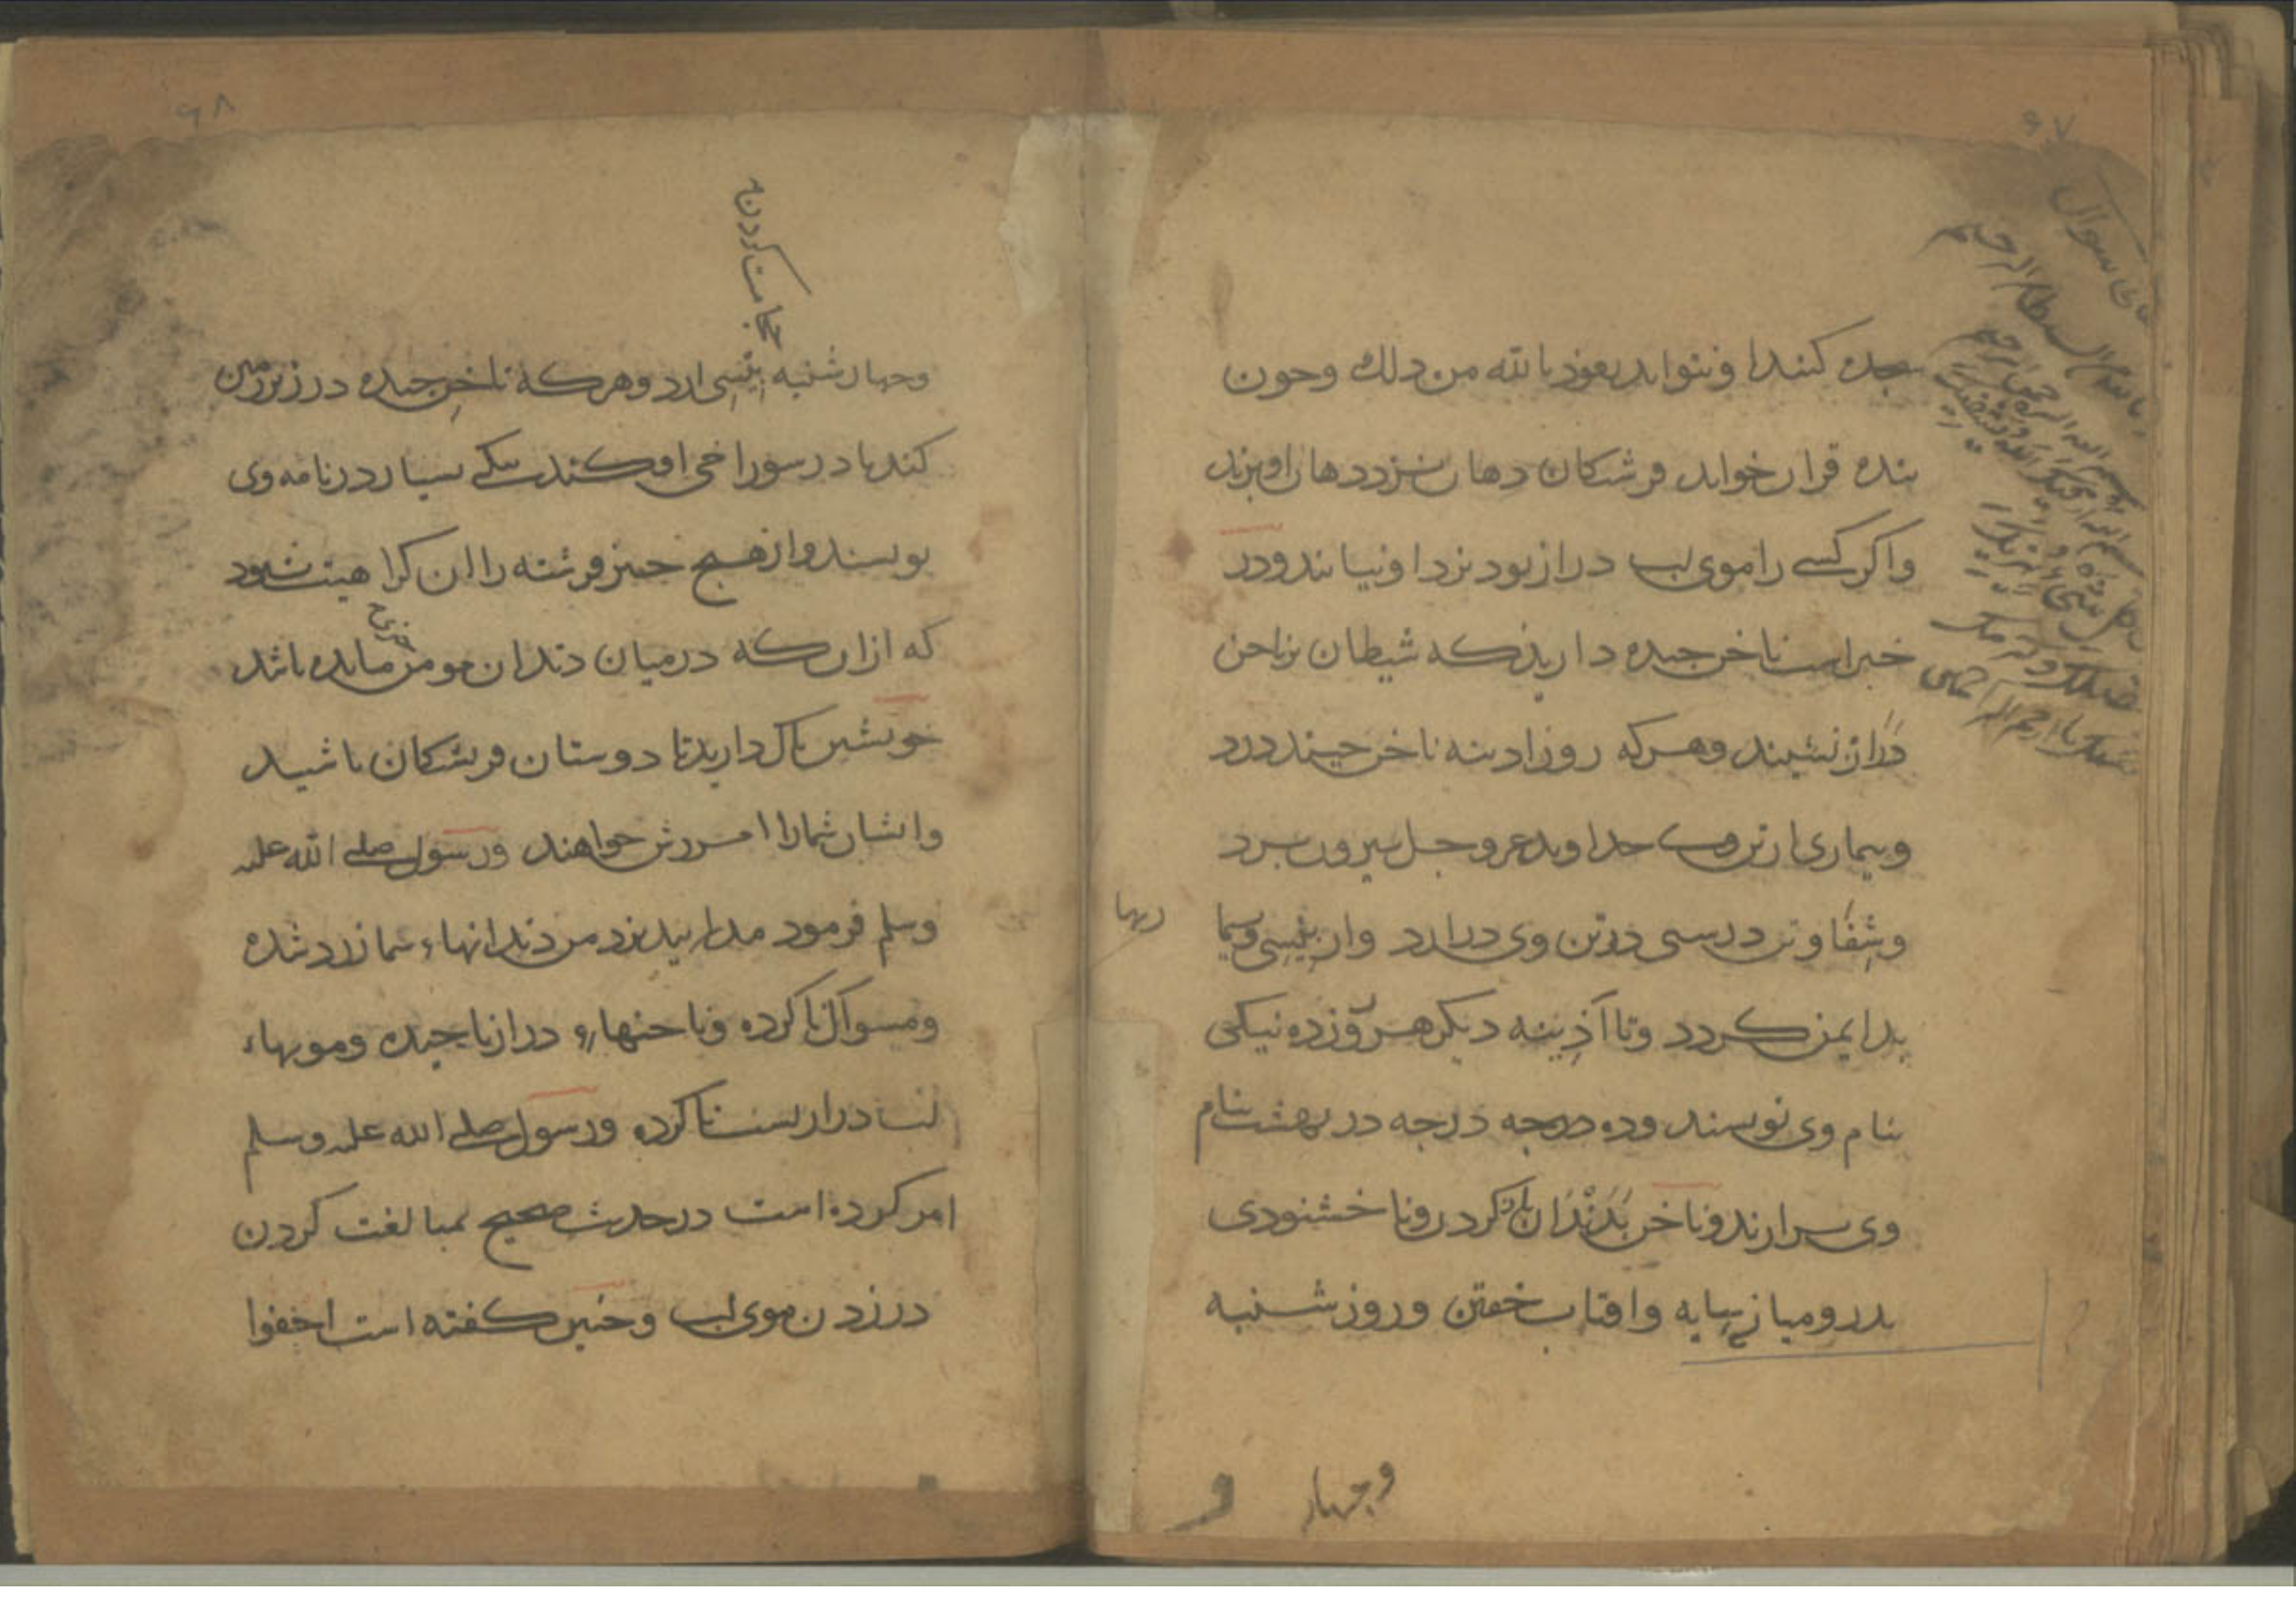 ۶۷
سجده کنند او نتواند نعوذ بالله من ذلك وچون
بنده قران خواند فرشتکان دهان نزد دهان او برند
واکر کسی را موی لب دراز بود نزد او نیایند ودر
خبر است ناخن چیده دارید که شیطان بر ناخن
دراز نشیند وهرکه روز ادینه ناخن چیند درد
وبیماری از تن وی خداوند عز وجل بیرون برد
وشفا وتن درستی در تن وی درارد واز
بد ایمن کردد وتا آذینه دیکر هر روز ده نیکی
بنام وی نویسند وده درجه درجه در بهشت بنام
وی برارند وناخن بدندان باز کردن وناخشنودی
پدر ومیان سایه وافتاب خفتن وروز شنبه
وچهار
۶۸
حجامت کردن
وچهارشنبه پیسی ارد وهرکه ناخن چیده در زیر زمین
کند یا در سوراخی افکند نیکی بسیار در نامه وی
نویسند واز هیچ چیز فرشته را ان کراهیت نبود
که از ان که در میان دندان مومن چیزی مانده باشد
خویشتن پاك دارید تا دوستان فرشتکان باشید
وایشان شمارا امرزش خواهند ورسول صلی الله علیه
وسلم فرمود میایید نزد من دندانهاء شما زرد شده
ومسواك نا کرده وناخنهاء دراز نا چیده ومویهاء
لب دراز پست نا کرده ورسول صلی الله علیه وسلم
امر کرده است در حدیث صحیح بمبالغت کردن
در زدن موی لب وچنین کفته است احفوا